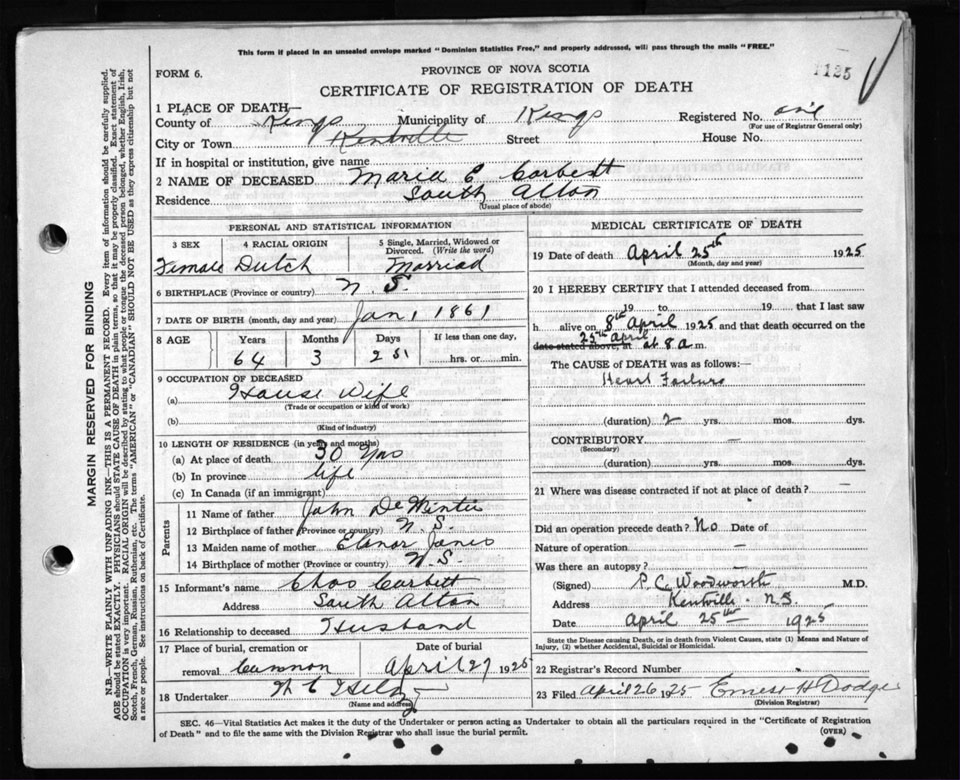 This form if placed in an unsealed envelope marked "Dominion Statistics Free," and properly addressed, will pass through the mails "FREE."
1125
FORM 6.
PROVINCE OF NOVA SCOTIA
CERTIFICATE OF REGISTRATION OF DEATH
1 PLACE OF DEATH—
County of Kings Municipality of Kings Registered No.
(For use of Registrar General only)
City or Town Kentville Street House No.
If in hospital or institution, give name
2 NAME OF DECEASED Maria E Corbett
Residence South Alton
(Usual place of abode)
PERSONAL AND STATISTICAL INFORMATION
3 SEX 4 RACIAL ORIGIN 5 Single, Married, Widowed or Divorced. (Write the word)
Female Dutch Married
6 BIRTHPLACE (Province or country) N. S.
7 DATE OF BIRTH (month, day and year) Jan 1 1861
8 AGE Years Months Days If less than one day,
64 3 hrs. or min.
9 OCCUPATION OF DECEASED
(a) House Wife
(Trade or occupation or kind of work)
(b)
(Kind of industry)
10 LENGTH OF RESIDENCE (in years and months)
(a) At place of death 30 Yrs
(b) In province life
(c) In Canada (if an immigrant)
Parents
11 Name of father John De Winter
12 Birthplace of father (Province or country) N. S.
13 Maiden name of mother Elenor Janes
14 Birthplace of mother (Province or country) N. S.
15 Informant's name Chas Corbett
Address South Alton
16 Relationship to deceased Husband
17 Place of burial, cremation or removal Date of burial
Cannon April 27 1925
18 Undertaker
(Name and address)
MEDICAL CERTIFICATE OF DEATH
19 Date of death April 25th 1925
(Month, day and year)
20 I HEREBY CERTIFY that I attended deceased from
19 to 19 that I last saw
h alive on 8th April 1925 and that death occurred on the
25th April
date stated above, at 8 a m.
The CAUSE of DEATH was as follows:—
Heart Failure
(duration) 2 yrs. mos. dys.
CONTRIBUTORY —
(Secondary)
(duration) yrs. mos. dys.
21 Where was disease contracted if not at place of death? —
Did an operation precede death? No Date of
Nature of operation —
Was there an autopsy? —
(Signed) P. C. Woodworth M.D.
Address Kentville. N S
Date April 25th 1925
State the Disease causing Death, or in death from Violent Causes, state (1) Means and Nature of Injury, (2) whether Accidental, Suicidal or Homicidal.
22 Registrar's Record Number
23 Filed April 26 1925 Ernest H Dodge
(Division Registrar)
SEC. 46—Vital Statistics Act makes it the duty of the Undertaker or person acting as Undertaker to obtain all the particulars required in the "Certificate of Registration
of Death" and to file the same with the Division Registrar who shall issue the burial permit.
MARGIN RESERVED FOR BINDING
N.B.—WRITE PLAINLY WITH UNFADING INK—THIS IS A PERMANENT RECORD. Every item of information should be carefully supplied.
AGE should be stated EXACTLY. PHYSICIANS should STATE CAUSE OF DEATH in plain terms, so that it may be properly classified. Exact statement of
OCCUPATION is very important. RACIAL ORIGIN will be described by stating to what people or tongue the deceased person belonged, whether English, Irish,
Scotch, French, German, Russian, Ruthenian, etc. The terms "AMERICAN" or "CANADIAN" SHOULD NOT BE USED as they express citizenship but not
a race or people. See instructions on back of Certificate.